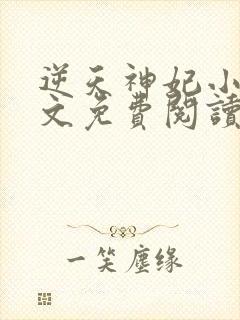 逆天神妃小
文免費閱讀
一笑塵缘